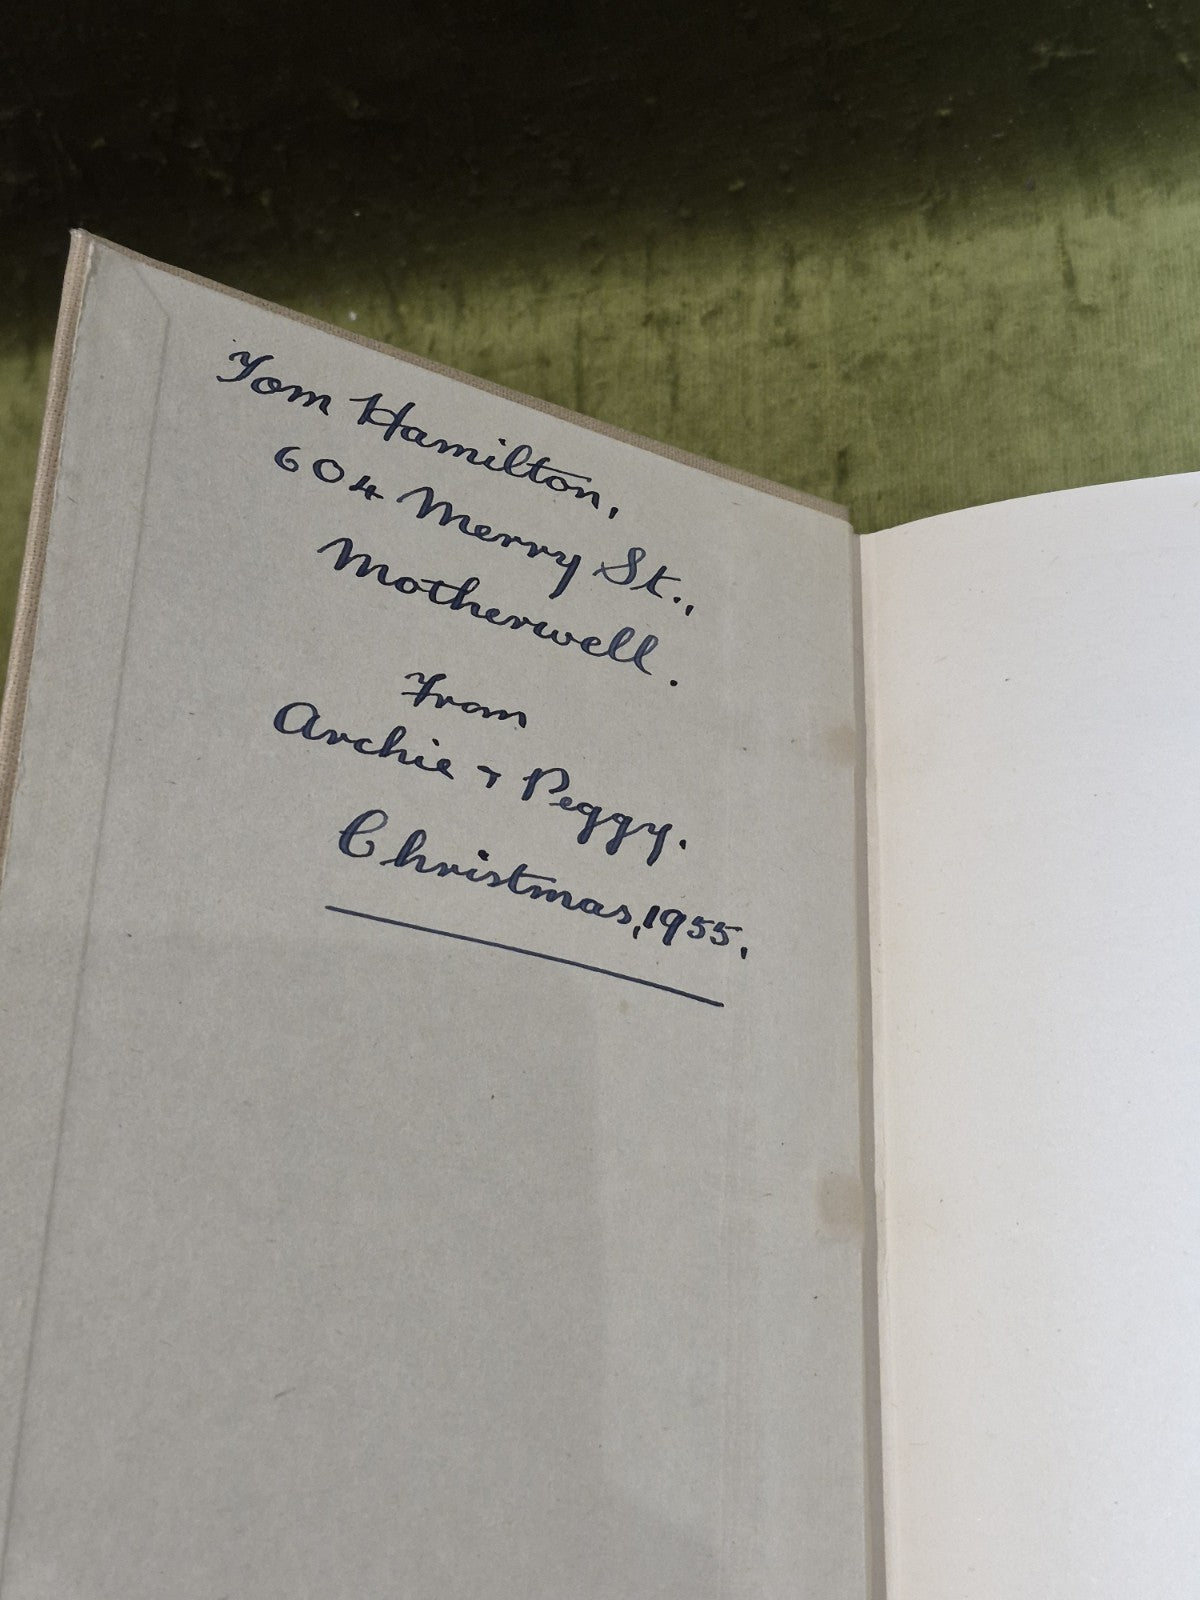 Tom Hamilton,
604 Merry St.,
Motherwell.
From
Archie & Peggy.
Christmas, 1955.